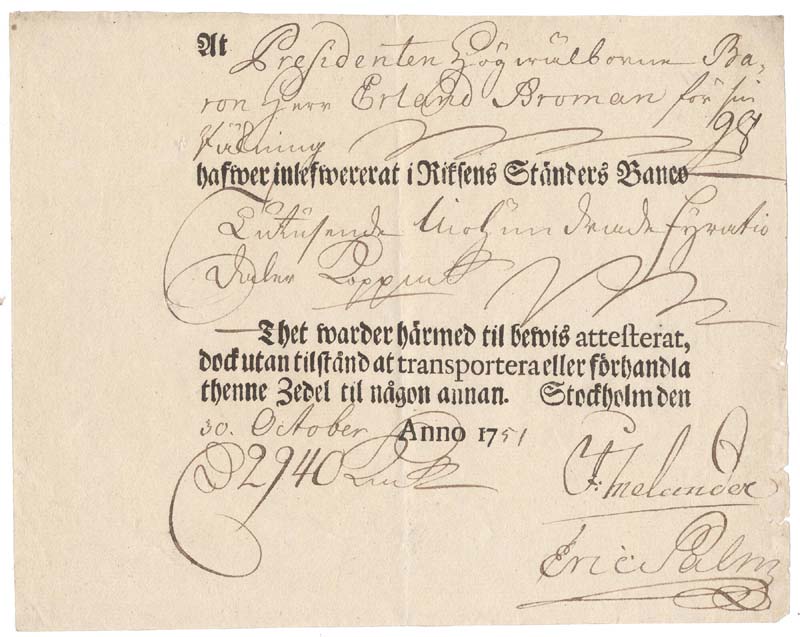 At Presidenten Högwälborne Ba-
ron Herr Erland Broman för sin
Räkning 98
hafwer inlefwererat i Riksens Ständers Banco
Ettusende Niohundrade Fyratio
daler Koppmt
Thet warder härmed til bewis attesterat,
dock utan tilstånd at transportera eller förhandla
thenne Zedel til någon annan. Stockholm den
30. October Anno 1751
D 2940 Kmt
F: Melander
Eric Palm